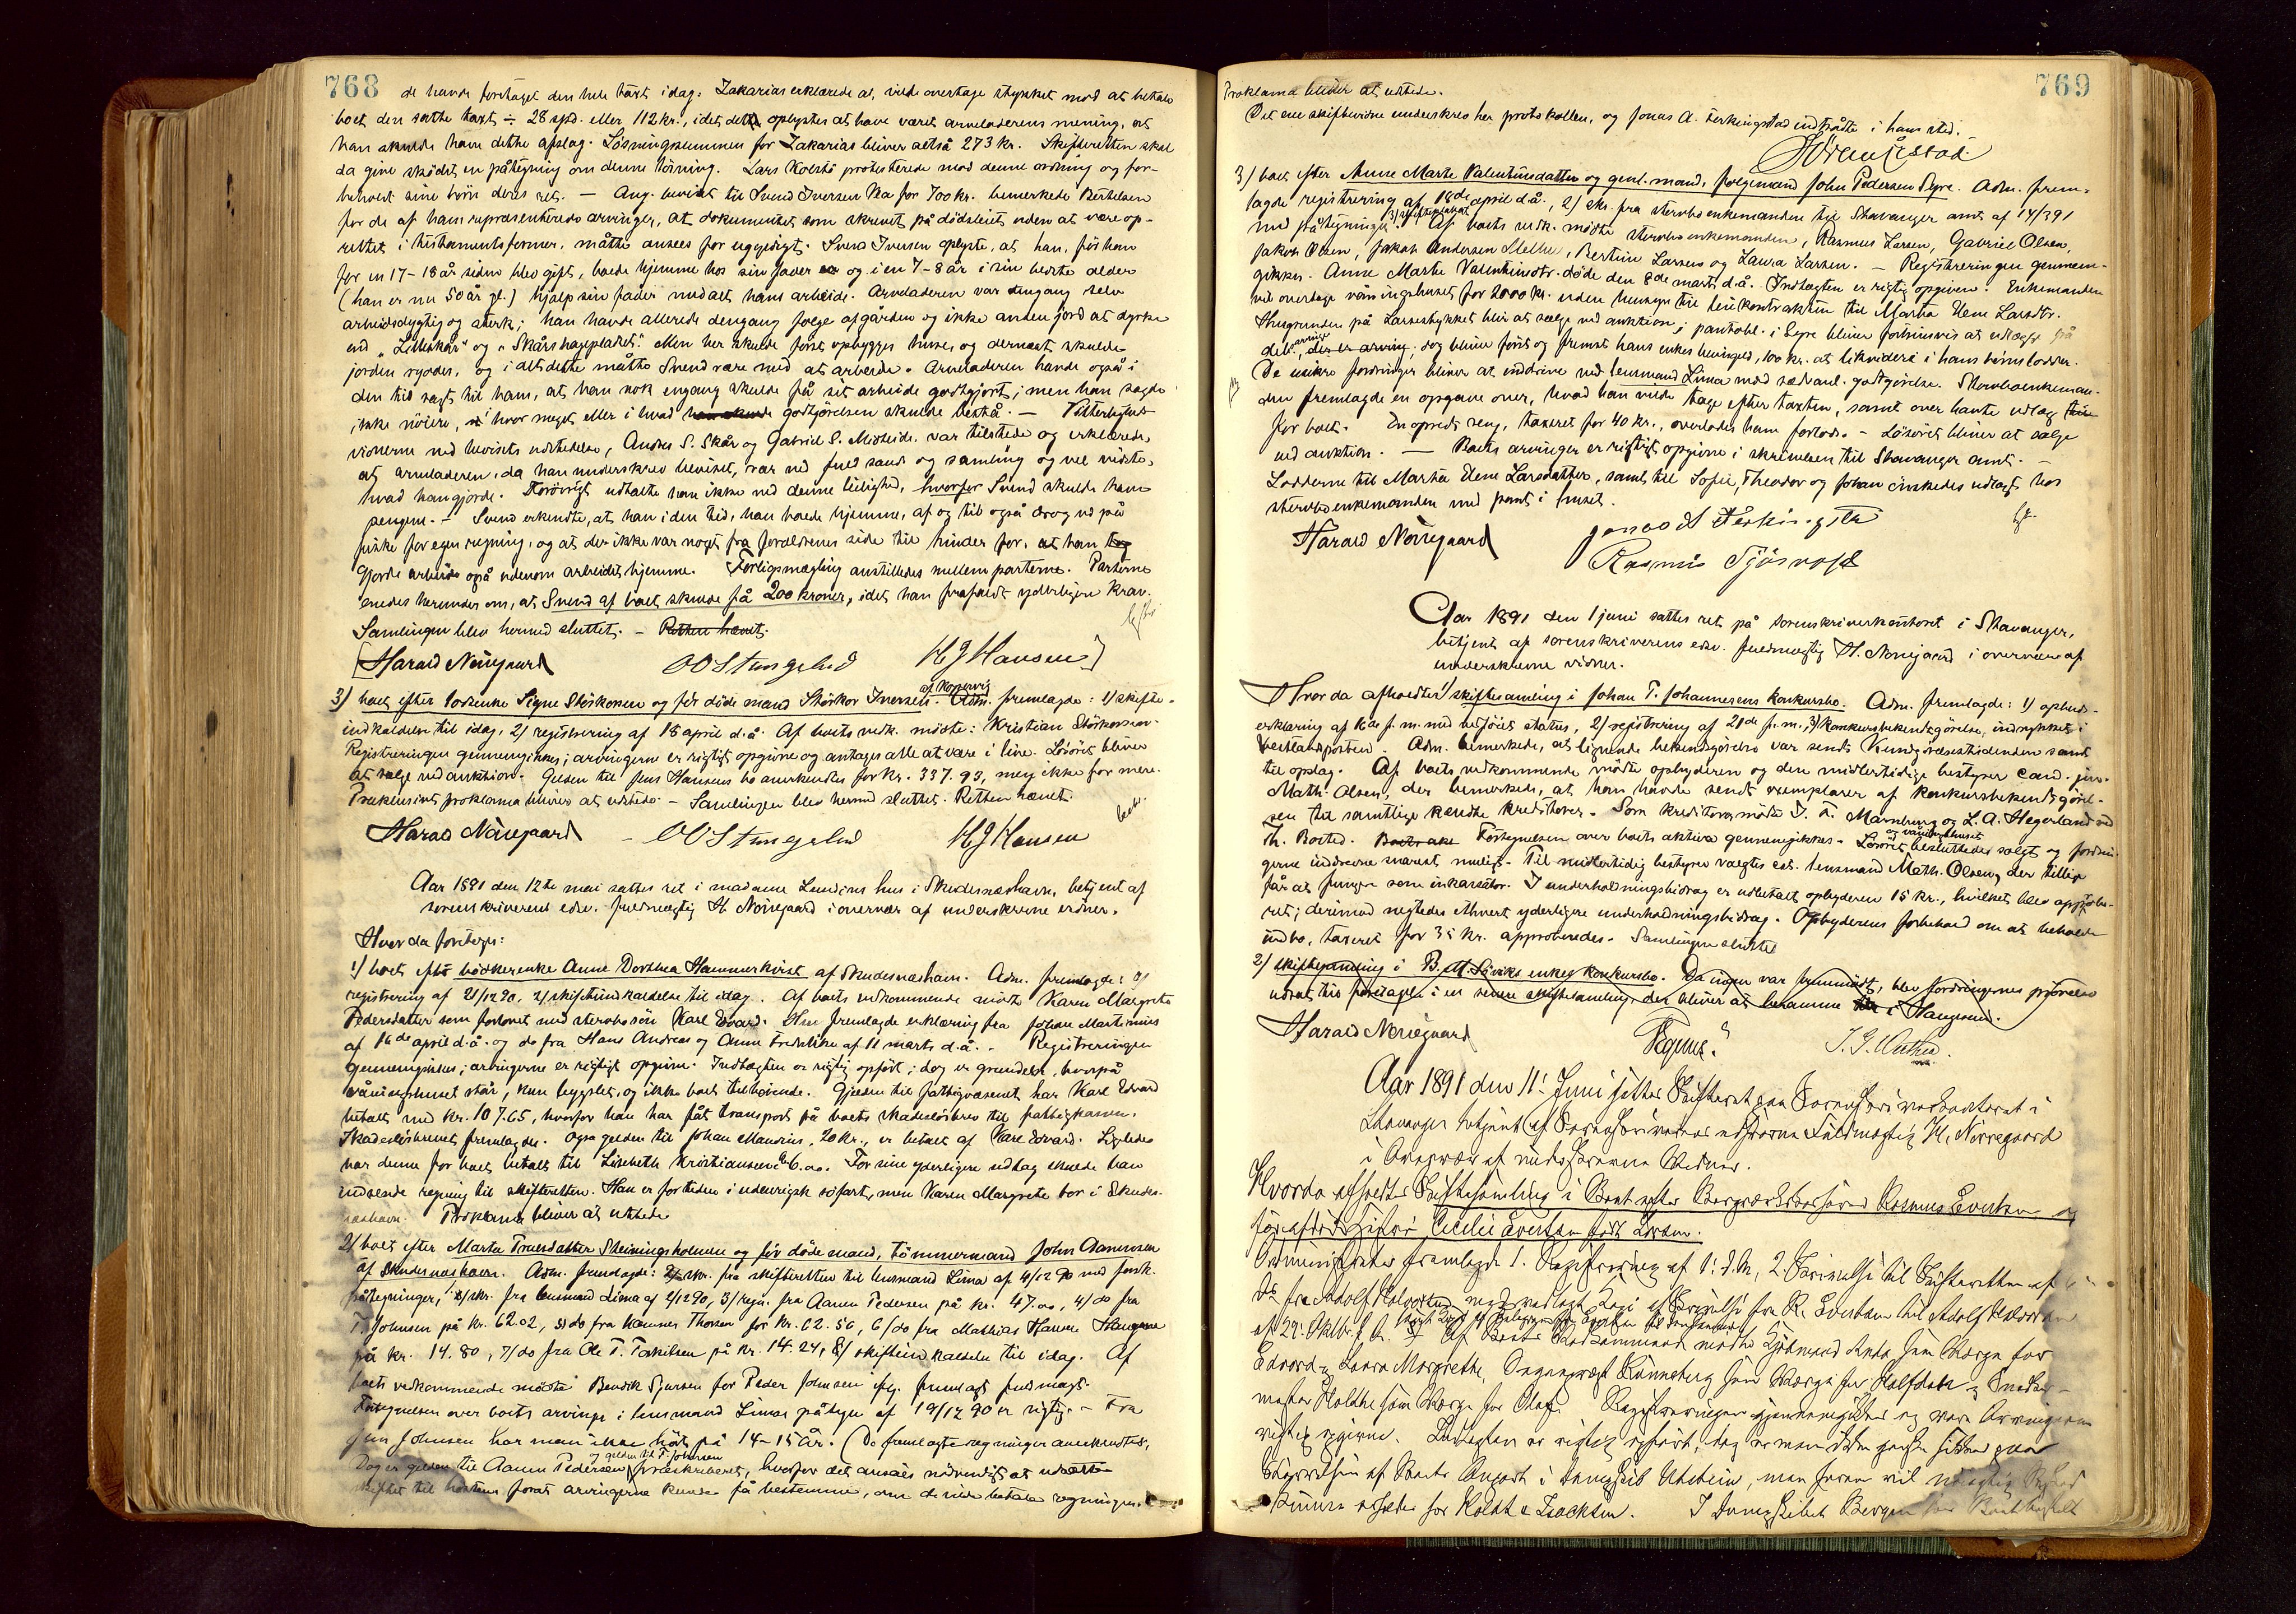 768
de havde foretaget den hele taxt idag. Zakarias erklærede at, vilde overtage stykket mod at betale
boet den satte taxt ÷ 28 spd. eller 112 kr., idet det oplystes at have været arveladerens mening, at
han skulde have dette afslag. Løsningssummen for Zakarias bliver altså 273 kr. Skifteretten skal
da give skjødet en påtegning om denne løsning. Lars Kolstø protesterede mod denne ordning og for-
beholdt sine børn deres ret. — Ang. beviset til Svend Iversen Va for 700 kr. bemerkede Bertelsen
for de af ham repræsenterede arvinger, at dokumentet som skrevet på dødsleiet uden at være op-
rettet i testamentsformer, måtte ansees for ugyldigt. Svend Iversen oplyste, at han, før han
for en 17-18 år siden blev gift, boede hjemme hos sin fader og i en 7-8 år i sin bedste alder
(han er nu 50 år gl.) hjalp sin fader med alt hans arbeide. Arveladeren var dengang selv
arbeidsdygtig og sterk; han havde allerede dengang solgt afgården og ikke anden jord at dyrke
end "Lilleskår" og "Skårshagepladet". Men her skulde først opbygges huse, og dernæst skulde
jorden ryddes, og i alt dette måtte Svend være med at arbeide. Arveladeren havde også i
den tid sagt til ham, at han nok engang skulde få sit arbeide godtgjort; men han sagde
ikke nøiere, hvor meget eller i hvad godtgjørelsen skulde bestå. — Vitterligheds-
vidnerne ved bevisets udstedelse, Anders S. Skår og Gabriel S. Mideide var tilstede og erklærede,
at arveladeren, da han underskrev beviset, var ved fuld sands og samling og vel vidste,
hvad han gjorde. Forøvrigt udtalte han ikke ved denne leilighed, hvorfor Svend skulde have
pengene. — Svend erkendte, at han i den tid, han boede hjemme, af og til også drog ud på
fiske for egen regning, og at der ikke var noget fra forældrenes side til hinder for, at han
gjorde arbeide også udenom arbeidet hjemme. Forligsmægling anstilledes mellem parterne. Parterne
enedes herunder om, at Svend af boet skulde få 200 kroner, idet han frafaldt yderligere krav.
Samlingen blev hermed sluttet. — Retten hævet.
Harald Nørregaard OO Stangeland H J Hansen
3) boet efter losenke Signe Størkosen og før døde mand Størkor Iversen af Kopervig. Adm. fremlagde: 1) skifte-
indkaldelse til idag, 2) registrering af 18 april d.å. Af boets vedk. mødte: Kristian Størkorsen.
Registreringen gennemgikkes; arvingerne er rigtigt opgivne og antages alle at være i live. Løsøret bliver
at sælge ved auktion. Gjælden til Jens Hansens bo anerkendtes for kr. 337.93, men ikke for mere.
Præklusivt proklama bliver at udstede. — Samlingen blev hermed sluttet. Retten hævet.
Harald Nørregaard — OO Stangeland H J Hansen
Aar 1891 den 12te mai sattes ret i madame Lundens hus i Skudesneshavn, betjent af
sorenskriverens edsv. fuldmægtig H. Nørregaard i overvær af underskrevne vidner.
Hvor da foretoges:
1) boet efter bødkerenke Anne Dorthea Hammerkvist af Skudesneshavn. Adm. fremlagde: 1)
registrering af 21/12 90, 2) skifteindkaldelse til idag. Af boets vedkommende mødte Karen Margrete
Pedersdatter som forlovet med sterbosøn Karl Edvard. Hun fremlagde erklæring fra Johan Martinius
af 16de april d.å. og do fra Hans Andreas og Anne Fredrikke af 11 marts d.å. — Registreringen
gennemgikkes; arvingerne er rigtigt opgivne. Indtægten er rigtig opført; dog er grunden, hvorpå
våningshuset står, kun bygslet, og ikke boet tilhørende. Gjælden til fattigvæsenet har Karl Edvard
betalt med kr. 107.65, hvorfor han har fåt transport på boets skadesløsbrev til fattigkassen.
Skadesløsbrevet fremlagdes. Også gælden til Johan Mandius, 20 kr., er betalt af Karl Edvard. Ligeledes
har denne for boet betalt til Lisebeth Kristiansen kr. 6.00. For sine yderligere udlæg skulde han
indsende regning til skifteretten. Han er for tiden i udenrigsk søfart, men Karen Margrete bor i Skudes-
neshavn. Proklama bliver at udstede
2) boet efter Marta Truesdatter Steiningsholmen og før døde mand, tømmermand John Aanensen
af Skudesneshavn. Adm. fremlagde: 1) skr. fra skifteretten til lensmand Lima af 4/12 90 med forsk.
påtegninger, 2) skr. fra lensmand Lima af 2/12 90, 3) regn. fra Aanen Pedersen på kr. 47.00, 4) do fra
T. Johnsen på kr. 62.02, 5) do fra kæmner Thorsen for kr. 62.50, 6) do fra Mathias Hansen
på kr. 14.80, 7) do fra Ole T. Torkilsen på kr. 14.24, 8) skifteindkaldelse til idag. Af
boets vedkommende mødte Bendik Sjursen for Peder Johnsen iflg. fremlagt fuldmagt.
Fortegnelsen over boets arvinger i lensmand Limas påtegn af 19/12 90 er rigtig. — Fra
Jens Johnsen har man ikke hørt på 14-15 år. (De fremlagte regninger anerkendtes,
Dog er gælden til Aanen Pedersen og gælden til T. Johnsen præskriberet, hvorfor det ansåes nødvendigt at udsætte
skiftet til høsten forat arvingerne kunde få bestemme, om de vilde betale regningen.
769
Proklama bliver at udstede.
Det ene skiftevidne underskrev her protokollen, og Jonas A. Ferkingstad indtrådte i hans sted.
3) boet efter Anne Marte Valentinsdatter og genl. mand, følgemand John Pedersen Syre. Adm. frem-
lagde registrering af 18de april d.å., 2) skr. fra sterboenkemanden til Stavanger amt af 14/3 91
med påtegninger. 3) skifteplakat. Af boets vedk. mødte sterboenkemanden, Rasmus Larsen, Gabriel Olsen,
Jakob Olsen, Jakob Andersen Stelle, Bertin Larsen og Laura Larsen. — Registreringen gennem-
gikkes. Anne Marte Valentinsdtr. døde den 8de marts d.å. Indtægten er rigtig opgiven. Enkemanden
vil overtage våningshuset for 2000 kr. uden hensyn til leiekontrakten til Marta Elene Larsdtr.
Husgrunden på Larsestykket blir at sælge ved auktion; pantobl. i Syre bliver fortrinsvis at udlægge på
dels arving, der er arving; dog bliver først og fremst hans enkes bevingsed, 100 kr. at likvidere i hans børns lodder.
De usikre fordringer bliver at inddrive ved lensmand Lima mod sædvanl. godtgørelse. Sterboenkeman-
den fremlagde en opgave over, hvad han vilde tage efter taxten, samt over havte udlæg
for boet. En opredt seng, taxeret for 40 kr., overlodes ham forlods. — Løsøret bliver at sælge
ved auktion. — Boets arvinger er rigtigt opgivne i skrivelsen til Stavanger amt. —
Lodderne til Marta Elene Larsdatter, samt til Sofie, Theodor og Johan ønskedes udlagt hos
sterboenkemanden med pant i huset.
Harald Nørregaard Jonas A Ferkingstad
Rasmus Tjøsvold
Aar 1891 den 1 juni sattes ret på sorenskriverkontoret i Stavanger,
betjent af sorenskriverens edsv. fuldmægtig H. Nørregaard i overvær af
underskrevne vidner.
Hvor da afholdtes 1) skiftesamling i Johan T. Johannesens konkursbo. Adm. fremlagde: 1) opbuds-
erklæring af 16de f.m. med vedføiet status, 2) registrering af 21de f.m., 3) konkursbekendtgørelse, indrykket i
Vestlandsposten. Adm. bemerkede, at lignende bekendtgørelse var sendt Kundgørelsestidenden samt
til opslag. Af boets vedkommende mødte opbyderen og den midlertidige bestyrer cand. jur.
Math. Olsen, der bemerkede, at han havde sendt exemplarer af konkursbekendtgørel-
sen til samtlige kendte kreditorer. Som kreditorer mødte J. F. Marnburg og L. A. Hegerland ved
Th. Borsted. Fortegnelsen over boets aktiva gennemgikkes. Løsøret og våningshuset besluttedes solgt og fordrin-
gerne inddrevne snarest mulig. Til midlertidig bestyrer valgtes cst. lensmand Math. Olsen, der tillige
får at fungere som inkassator. I underholdningsbidrag er udbetalt opbyderen 15 kr., hvilket blev approbe-
ret; derimod negtedes ethvert yderligere underholdningsbidrag. Opbyderens forbehold om at beholde
indbo, taxeret for 35 kr. approberedes. Samlingen sluttet
2) skiftesamling i B. M. Søviks enkes konkursbo. Da ingen var fremmødt, blev fordringernes prøvelse
udsat til foretagelse i en senere skiftesamling, der bliver at beramme i Haugesund.
Harald Nørregaard
Aar 1891 den 11. Juni sattes Skifteret paa Sorenskriverkontoret i
Stavanger betjent af Sorenskriverens edsvorne Fuldmægtig H. Nørregaard
i Overvær af underskrevne Vidner.
Hvorda afholdtes Skiftesamling i Boet efter Bergværksbestyrer Rasmus Evertsen og
før afdøde Hustru Cecilie Evertsen født Larsen.
Administrator fremlagde 1. Registrering af 1. d.M, 2. Skrivelse til Skifteretten af
Do fra Adolf Halvorsen med vedlagt Kopi af Skrivelse fra R. Evertsen til Adolf Halvorsen
af 29. Septbr. f. A. Af Boets Vedkommende mødte Kjøbmand Anda som Værge for
Edvard og Laura Margrethe, Ovenværgt Rønneberg som Værge for Halfdan og Snedker-
mester Holdhe som Værge for Olaf. Registreringen gjennemgikkes og var Arvingerne
rigtig opgivne. Indtægten er rigtig opført,
af Boets Anpart i Dampskib Utstein, men
for Holdt & Isachsen. I Dampskibet Bergen